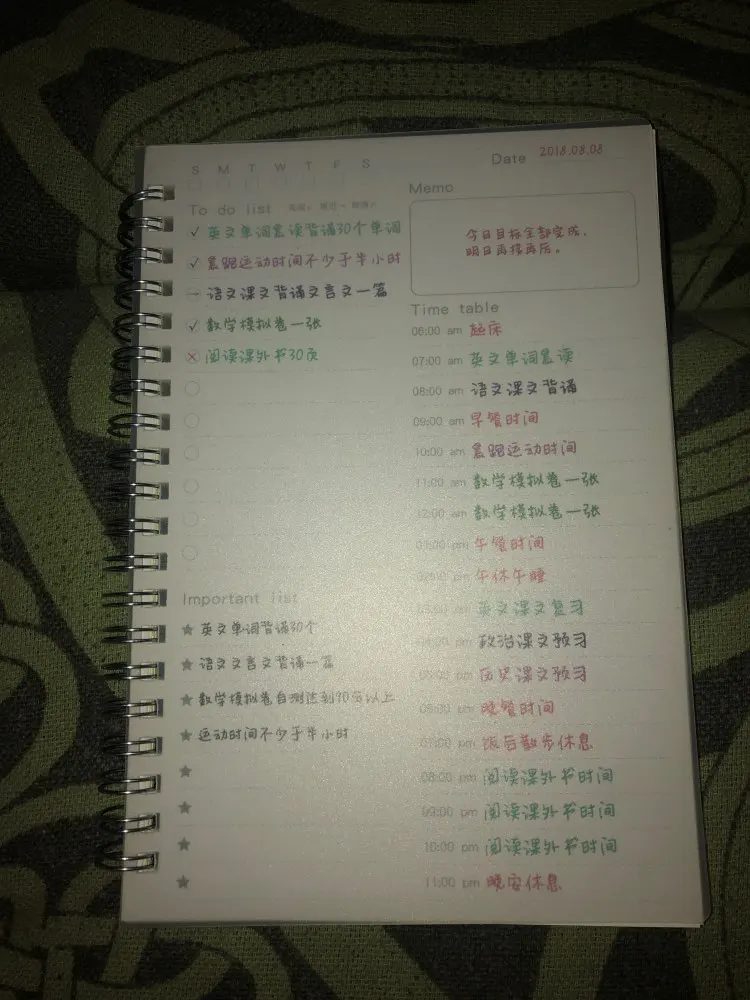 S M T W T F S
Date 2018.08.08
To do list
✓ 英文单词晨读背诵30个单词
✓ 晨跑运动时间不少于半小时
→ 语文课文背诵文言文一篇
✓ 数学模拟卷一张
× 阅读课外书30页
Important list
★ 英文单词背诵30个
★ 语文文言文背诵一篇
★ 数学模拟卷自测达到90分以上
★ 运动时间不少于半小时
Memo
今日目标全部完成,
明日再接再厉。
Time table
06:00 am 起床
07:00 am 英文单词晨读
08:00 am 语文课文背诵
09:00 am 早餐时间
10:00 am 晨跑运动时间
11:00 am 数学模拟卷一张
12:00 am 数学模拟卷一张
01:00 pm 午餐时间
02:00 pm 午休午睡
03:00 pm 英文课文复习
04:00 pm 政治课文预习
05:00 pm 历史课文预习
06:00 pm 晚餐时间
07:00 pm 饭后散步休息
08:00 pm 阅读课外书时间
09:00 pm 阅读课外书时间
10:00 pm 阅读课外书时间
11:00 pm 晚安休息